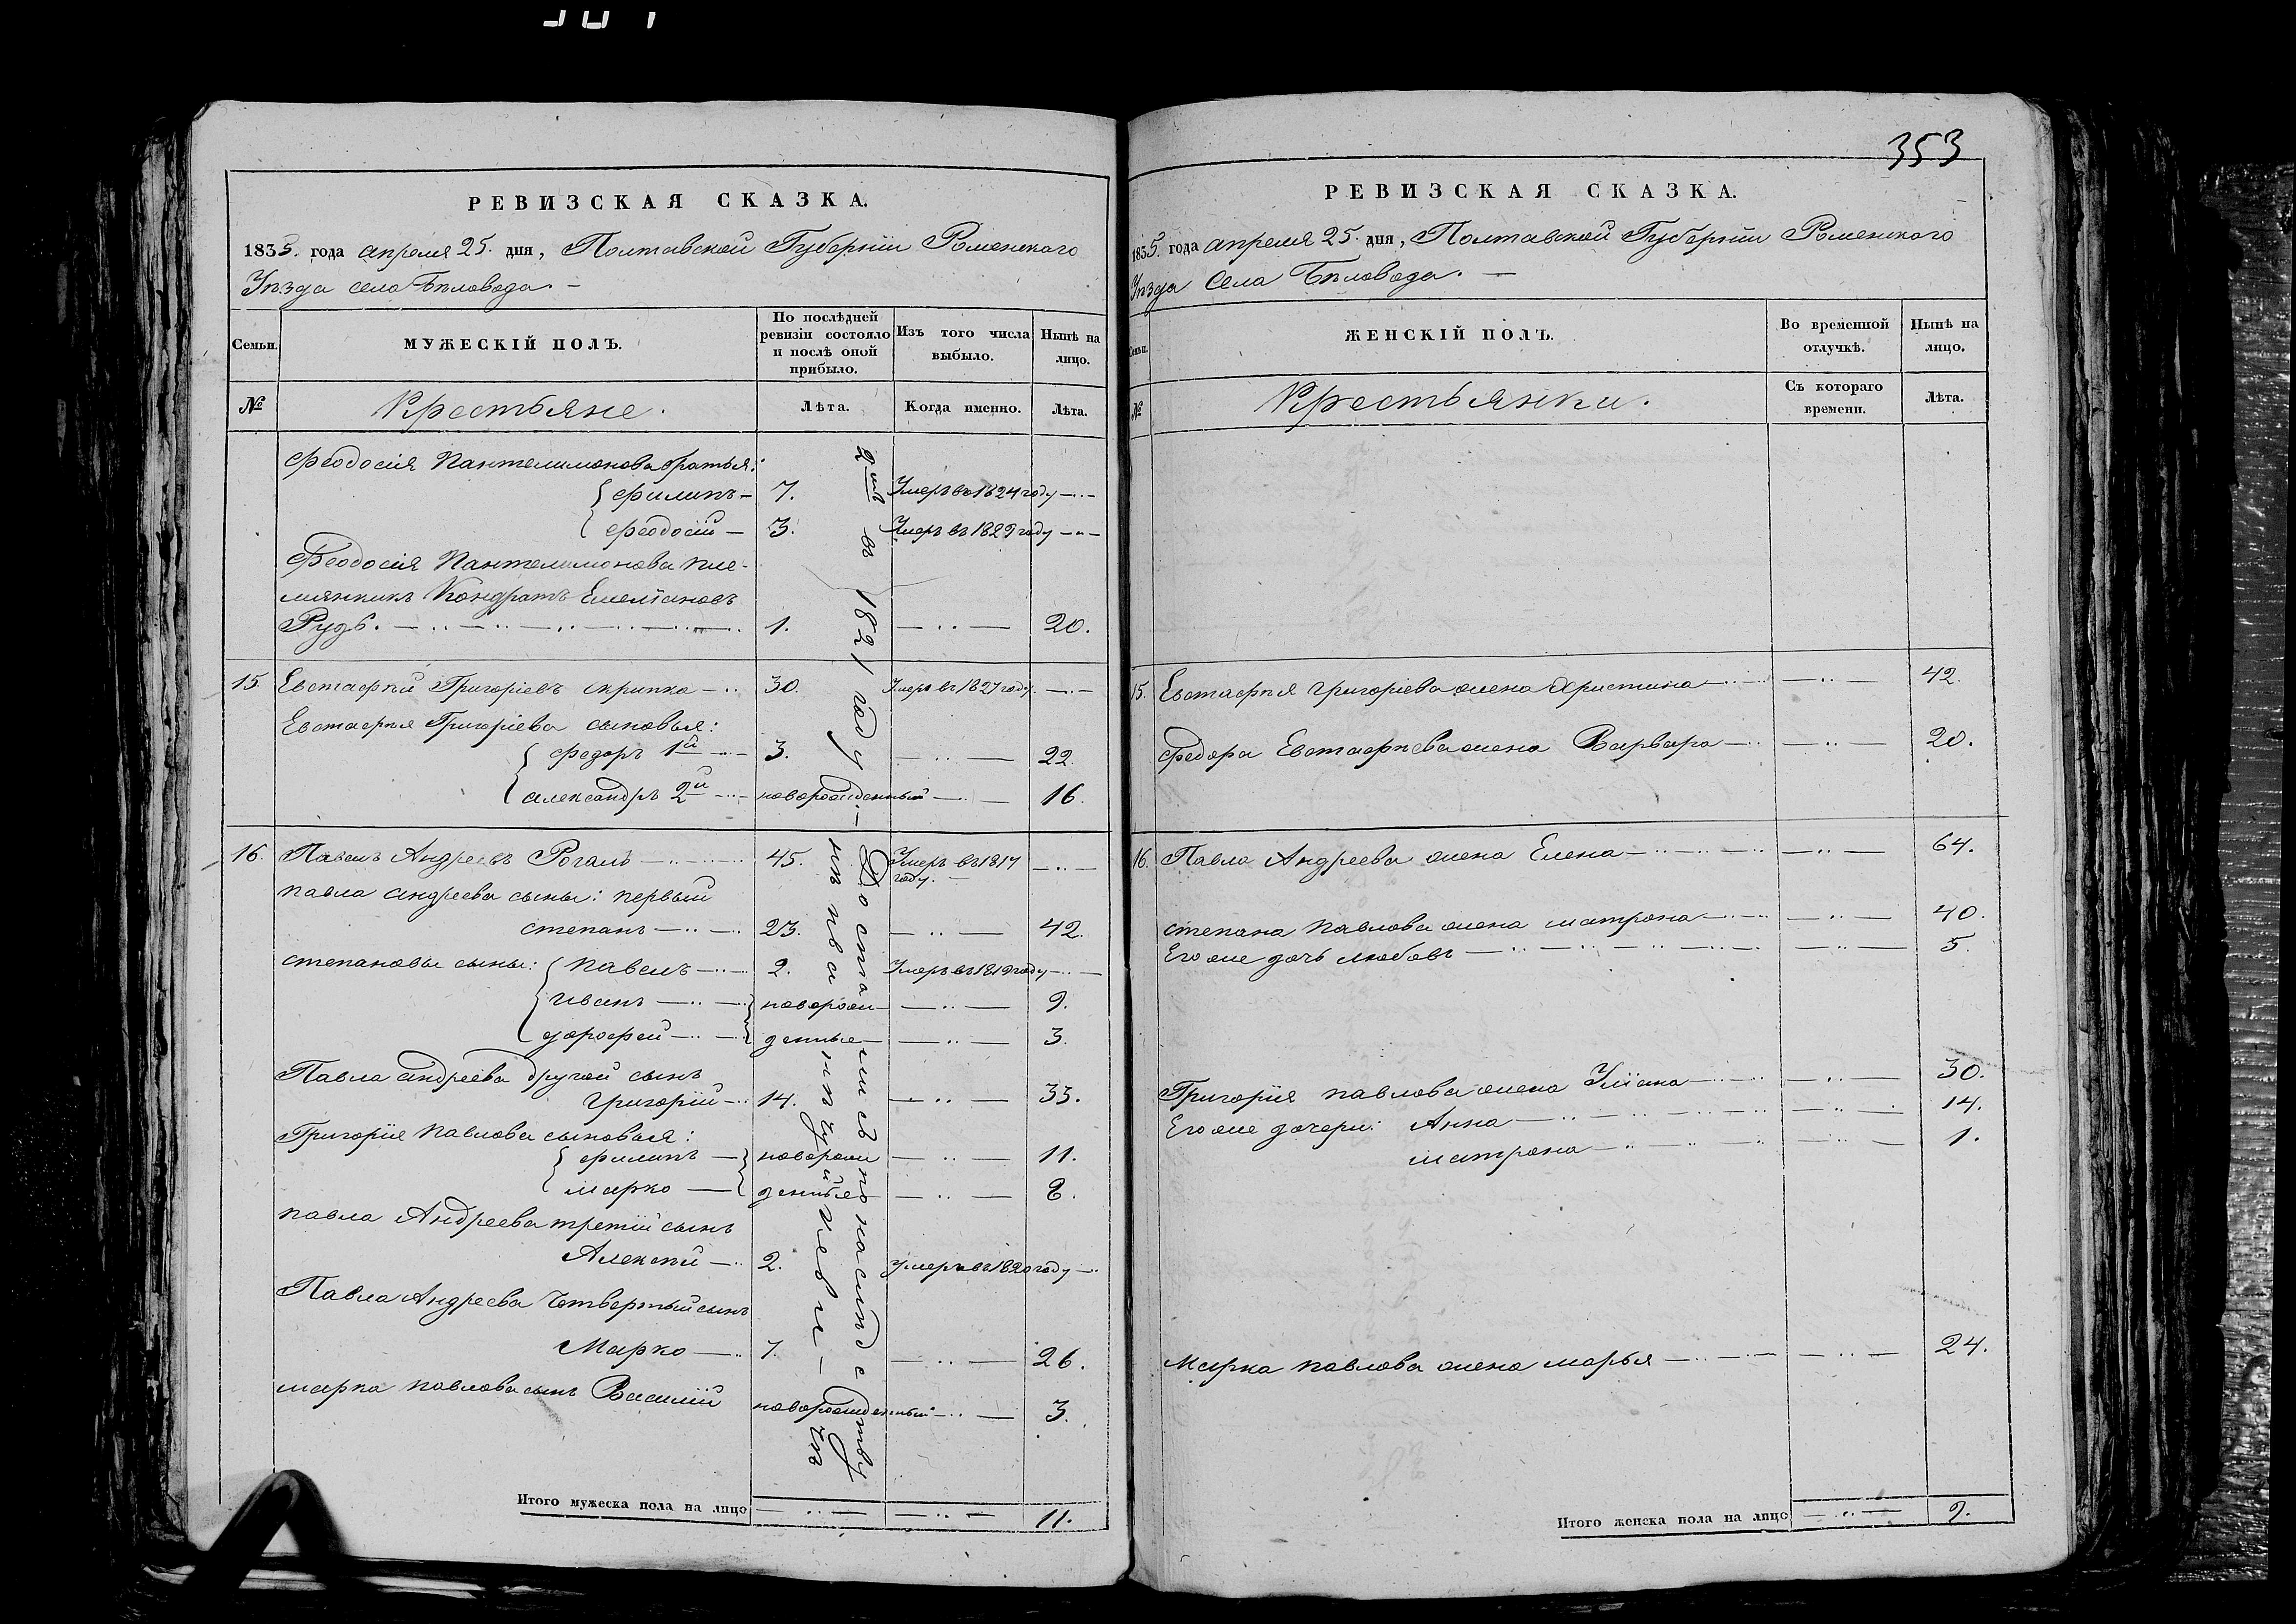 РЕВИЗСКАЯ СКАЗКА.
1835. года апреля 25. дня, Полтавской Губернии Роменского
Уѣзда села Бѣловода. —
Семьи.
МУЖЕСКІЙ ПОЛЪ.
По послѣдней ревизіи состояло и послѣ оной прибыло.
Изъ того числа выбыло.
Нынѣ на лицо.
№
Крестьяне.
Лѣта.
Когда именно.
Лѣта.
Феодосія Пантелимонова братья:
Филипъ — 7. Умеръ въ 1824 году
Феодосій — 3. Умеръ въ 1829 году
Феодосія Пантелимонова пле-
мянникъ Кондратъ Емелianовъ
Рудь. 1. 20.
15. Евстафій Григоріевъ скрипка 30. Умеръ въ 1827 году
Евстафія Григоріева сыновья:
Федоръ 1й 3. 22.
александръ 2й новорожденный 16.
16. Павелъ Андреевъ Рогаль 45. Умеръ въ 1817
году.
павла андреева сыны: первый
степанъ 23. 42.
степановы сыны: павелъ 2. Умеръ въ 1819 году
иванъ новорож 9.
дорофей денные 3.
Павла андреева другой сынъ
григорій 14. 33.
Григорія павлова сыновья:
филипъ новорож 11.
марко денные 8.
павла Андреева третій сынъ
Алексѣй 2. умеръ въ 1820 году
Павла Андреева четвертый сынъ
Марко 7. 26.
марка павлова сынъ Василій новорожденный 3.
въ 1821 году
Досталися по наслѣдству
Итого мужеска пола на лицо 11.
353
РЕВИЗСКАЯ СКАЗКА.
1835. года апреля 25. дня, Полтавской Губерніи Роменского
Уѣзда Села Бѣловода. —
Семьи.
ЖЕНСКІЙ ПОЛЪ.
Во временной отлучкѣ.
Нынѣ на лицо.
№
Крестьянки.
Съ котораго времени.
Лѣта.
15. Евстафія григоріева жена Христина 42.
Федора Евстафіева жена Варвара 20.
16. Павла Андреева жена Елена 64.
степана павлова жена матрона 40.
Его же дочь любовь 5.
Григорія павлова жена Уліана 30.
Его же дочери: Анна 14.
матрона 1.
Марка павлова жена марья 24.
Итого женска пола на лицо 9.